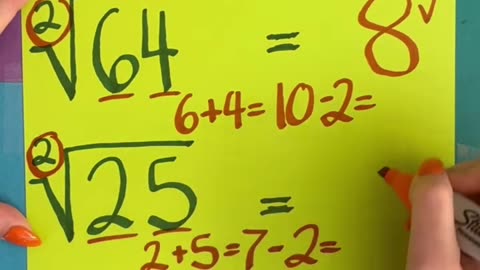 ²√64 = 8√
6+4=10-2=
²√25 =
2+5=7-2=